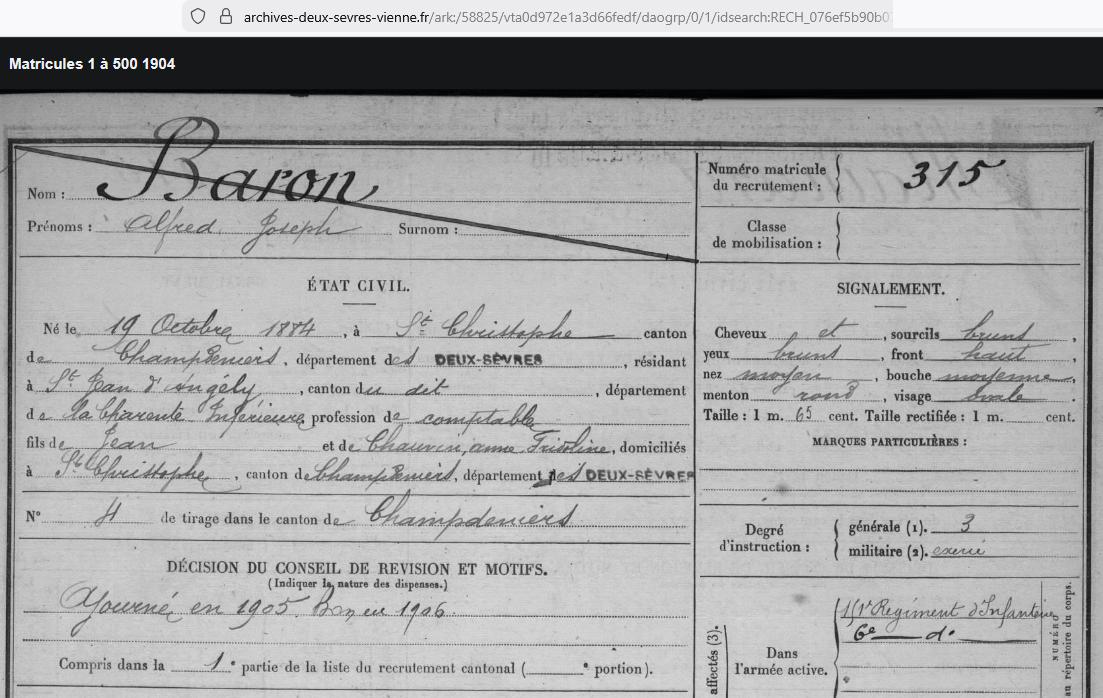 archives-deux-sevres-vienne.fr/ark:/58825/vta0d972e1a3d66fedf/daogrp/0/1/idsearch:RECH_076ef5b90b0
Matricules 1 à 500 1904
Nom : Baron
Prénoms : Alfred Joseph Surnom :
Numéro matricule du recrutement : 315
Classe de mobilisation :
ÉTAT CIVIL.
Né le 19 Octobre 1884, à St Christophe canton
de Champdeniers, département des DEUX-SÈVRES, résidant
à St Jean d'Angély, canton du dit, département
de la Charente Inférieure, profession de comptable
fils de Jean et de Chauvin, anne, domiciliés
à St Christophe, canton de Champdeniers, département des DEUX-SÈVRES
N° 4 de tirage dans le canton de Champdeniers
DÉCISION DU CONSEIL DE REVISION ET MOTIFS.
(Indiquer la nature des dispenses.)
Ajourné en 1905. Bon en 1906.
Compris dans la 1e partie de la liste du recrutement cantonal ( e portion).
SIGNALEMENT.
Cheveux et, sourcils bruns,
yeux bruns, front haut,
nez moyen, bouche moyenne,
menton rond, visage ovale.
Taille : 1 m. 65 cent. Taille rectifiée : 1 m. cent.
MARQUES PARTICULIÈRES :
Degré d'instruction :
générale (1). 3
militaire (2). exercé
affectés (3).
Dans l'armée active.
Régiment d'Infanterie
6e do
NUMÉRO
au répertoire du corps.